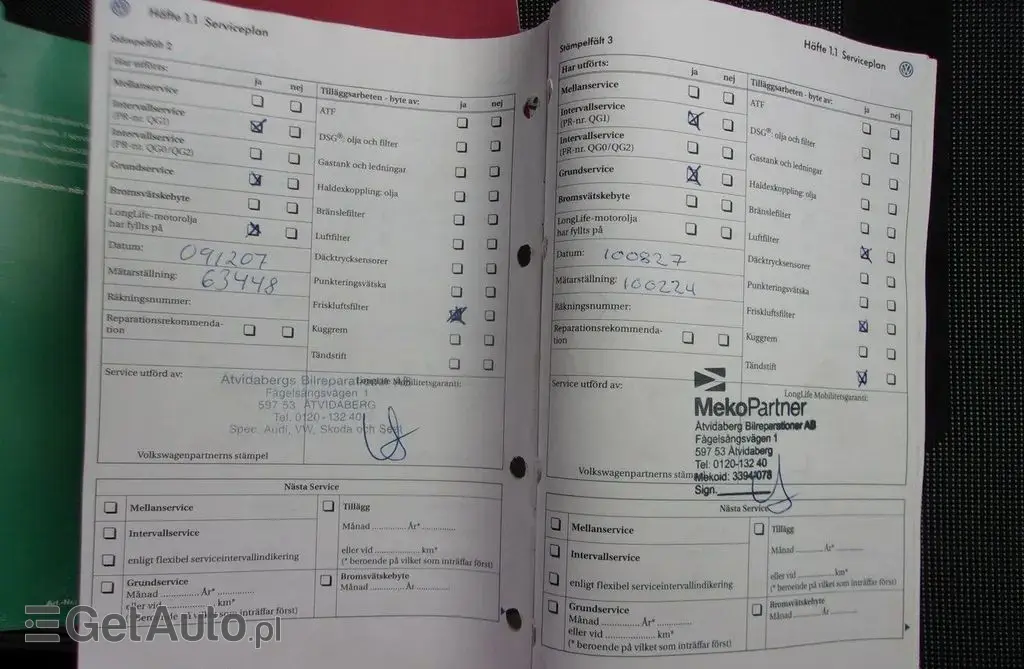 Häfte 1.1 Serviceplan
Stämpelfält 2
Har utförts:
ja
nej
Mellanservice
Intervallservice
(PR-nr. QG1)
Intervallservice
(PR-nr. QG0/QG2)
Grundservice
Bromsvätskebyte
LongLife-motorolja
har fyllts på
Datum: 091207
Mätarställning: 63448
Räkningsnummer:
Reparationsrekommenda-
tion
Tilläggsarbeten - byte av:
ja
nej
ATF
DSG®: olja och filter
Gastank och ledningar
Haldexkoppling: olja
Bränslefilter
Luftfilter
Däcktrycksensorer
Punkteringsvätska
Friskluftsfilter
Kuggrem
Tändstift
Service utförd av:
LongLife Mobilitetsgaranti:
Åtvidabergs Bilreparationer AB
Fågelsångsvägen 1
597 53 ÅTVIDABERG
Tel. 0120-132 40
Spec. Audi, VW, Skoda och Seat
Volkswagenpartnerns stämpel
Nästa Service
Mellanservice
Intervallservice
enligt flexibel serviceintervallindikering
Grundservice
Månad ............ År*............
eller vid ............ km*
(* beroende på vilket som inträffar först)
Tillägg
Månad ............ År*............
eller vid ............ km*
(* beroende på vilket som inträffar först)
Bromsvätskebyte
Månad ............ År ............
Häfte 1.1 Serviceplan
Stämpelfält 3
Har utförts:
ja
nej
Mellanservice
Intervallservice
(PR-nr. QG1)
Intervallservice
(PR-nr. QG0/QG2)
Grundservice
Bromsvätskebyte
LongLife-motorolja
har fyllts på
Datum: 100827
Mätarställning: 100224
Räkningsnummer:
Reparationsrekommenda-
tion
Tilläggsarbeten - byte av:
ja
nej
ATF
DSG®: olja och filter
Gastank och ledningar
Haldexkoppling: olja
Bränslefilter
Luftfilter
Däcktrycksensorer
Punkteringsvätska
Friskluftsfilter
Kuggrem
Tändstift
Service utförd av:
LongLife Mobilitetsgaranti:
MekoPartner
Åtvidaberg Bilreparationer AB
Fågelsångsvägen 1
597 53 Åtvidaberg
Tel: 0120-132 40
Mekoid: 3394078
Sign.
Volkswagenpartnerns stämpel
Nästa Service
Mellanservice
Intervallservice
enligt flexibel serviceintervallindikering
Grundservice
Månad ............ År*............
eller vid ............ km*
(* beroende på vilket som inträffar först)
Tillägg
Månad ............ År*............
eller vid ............ km*
(* beroende på vilket som inträffar först)
Bromsvätskebyte
Månad ............ År ............
GetAuto.pl